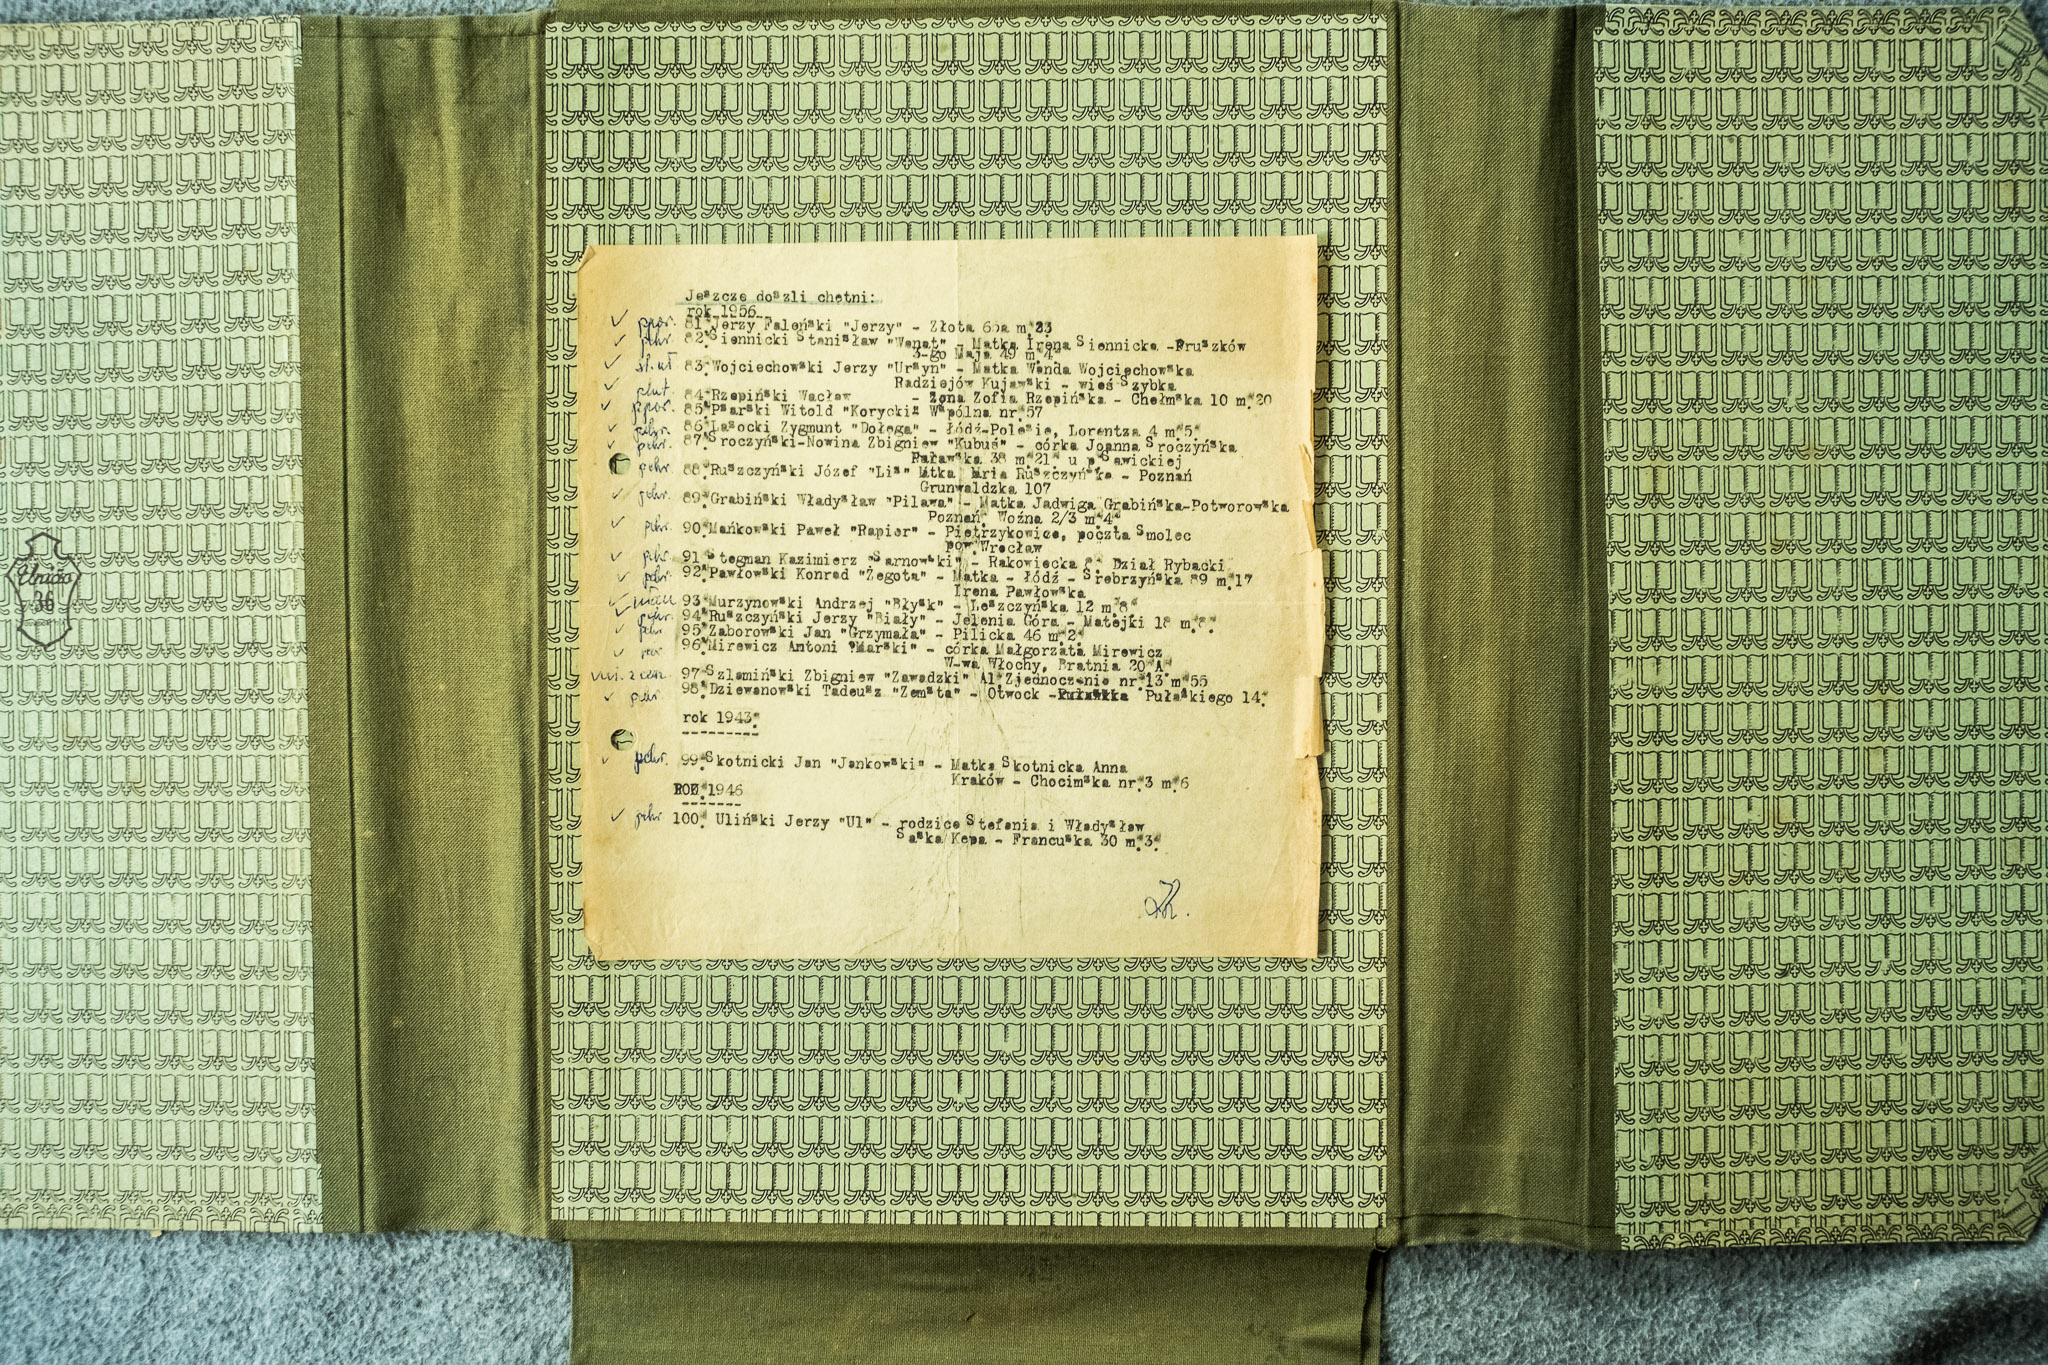 Jeszcze doszli chętni:
rok 1956
✓ ppor. 81. Jerzy Faleński "Jerzy" - Złota 65a m.23
✓ pchr. 82. Siennicki Stanisław "Wanat" - Matka Irena Siennicka -Pruszków
3-go Maja 49 m.4
✓ st.uł 83. Wojciechowski Jerzy "Ursyn" - Matka Wanda Wojciechowska
Radziejów Kujawski - wieś Szybka
✓ plut. 84. Rzepiński Wacław - żona Zofia Rzepińska - Chełmska 10 m.20
✓ ppor. 85. Psarski Witold "Korycki" Wspólna nr.57
✓ pchr. 86. Lasocki Zygmunt "Dołęga" - Łódź-Polesie, Lorentza 4 m.5.
✓ pchr. 87. Sroczyński-Nowina Zbigniew "Kubuś" - córka Joanna Sroczyńska
Puławska 38 m.21. u p.Sawickiej
pchr. 88. Ruszczyński Józef "Lis" Mtka Maria Ruszczyńska - Poznań
Grunwaldzka 107
✓ pchr. 89. Grabiński Władysław "Pilawa" - Matka Jadwiga Grabińska-Potworowska
Poznań. Woźna 2/3 m.4.
✓ pchr. 90. Mańkowski Paweł "Rapier" - Pietrzykowice, poczta Smolec
pow.Wrocław
✓ pchr. 91. Stegman Kazimierz "Sarnowski" - Rakowiecka 8. Dział Rybacki
✓ pchr. 92. Pawłowski Konrad "Żegota" - Matka - Łódź - Srebrzyńska 89 m.17
Irena Pawłowska
✓ 93. Murzynowski Andrzej "Błysk" - Leszczyńska 12 m.8.
✓ pchr. 94. Ruszczyński Jerzy "Biały" - Jelenia Góra - Matejki 18 m.8.
✓ pchr 95. Zaborowski Jan "Grzymała" - Pilicka 46 m.2.
✓ 96. Mirewicz Antoni "Marski" - córka Małgorzata Mirewicz
W-wa Włochy, Bratnia 20.A.
97. Szlamiński Zbigniew "Zawadzki" Al.Zjednoczenia nr.13 m.55
✓ 98. Dziewanowski Tadeusz "Zemsta" - Otwock - Pułaskiego 14.
rok 1943.
---------
✓ pchr. 99. Skotnicki Jan "Jankowski" - Matka Skotnicka Anna
Kraków - Chocimska nr.3 m.6
ROK.1946
-------
✓ pchr 100. Uliński Jerzy "Ul" - rodzice Stefania i Władysław
Saska Kępa - Francuska 30 m.3.
Unido
36